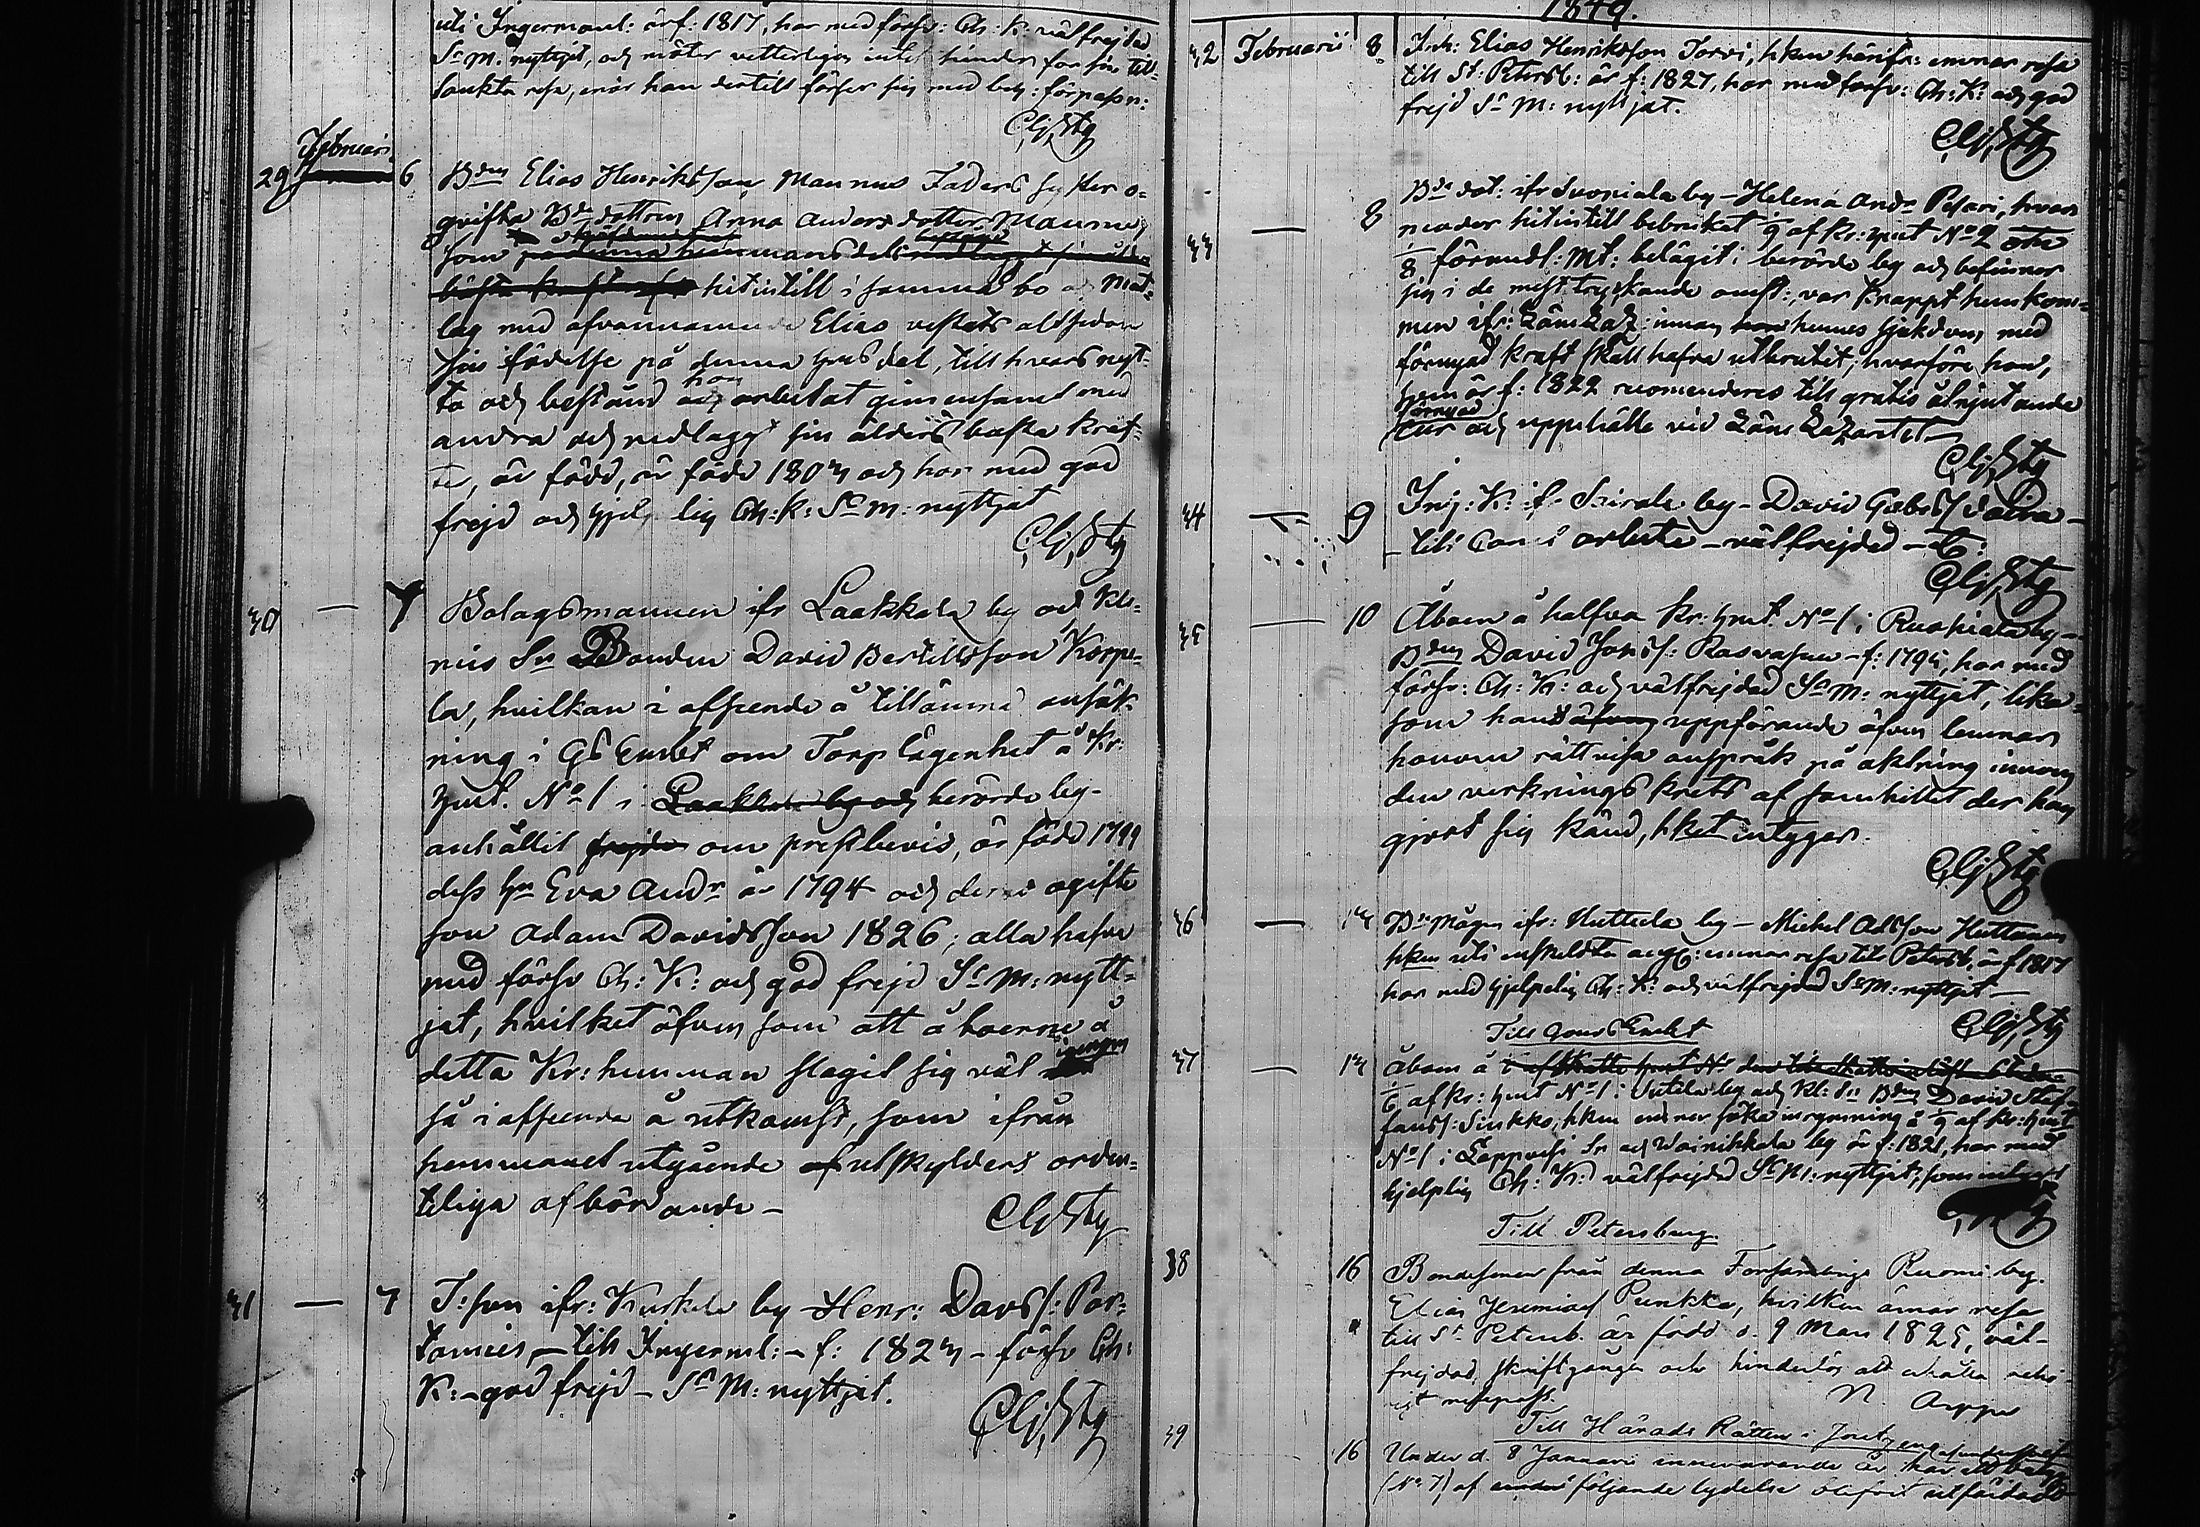 uti Ingermanl: är f: 1817, har med försv: Ch: K: välfrejdad
Sn M: nyttjat, och möter vetterligen intet hinder för sin till-
tänkta resa, enär han dertill förser sig med beh: förpassn:
29 Februari 6 Bden Elias Henriksson Mannus Faders syster o-
gifta Bdedottren Anna Andersdotter Mannus
som på denna hemmansdel
hitintill i samma bo och mat-
lag med ofvannämnde Elias vistats altsedan
sin födelse på denna hmsdel, till hvars nyt-
ta och bestånd hon arbetat gemensamt med
andra och nedlagt sin ålders bästa kraf-
ter, är född 1803 och har med god
frejd och hjelplig Ch: K: Sn M: nyttjat
30 — 7 Bolagsmannen ifr Laakkola by och Kle-
mis Sn Bonden David Bertillsson Korpe-
la, hvilkan i afseende å tillämnad ansök-
ning i Gs Embt om Torp lägenhet å Kr:
hmt. No 1 i Laakkola by och berörde by-
anhållit om prestbevis, är född 1799
dess hu Eva Andr är 1794 och deras ogifte
son Adam Davidsson 1826; alla hafva
med försv Ch: K: och god frejd Sn M: nytt-
jat, hvilket äfven som att åboerne å
detta Kr: hemman slagit sig väl igenom
så i afseende å utkomst, som ifrån
hemmanet utgående utskylders orden-
teliga afbördande —
31 — 7 T: son ifr: Kurkela by — Henr: Davss: Par-
tanies — till Ingerml: — f: 1823 — försv Ch:
K: — god frejd — Sn M: nyttjat.
1849.
32 Februarii 8 Inh: Elias Henriksson Torvi, hken härifr: ernar resa
till St: Petersb: är f: 1827, har med försv: Ch: K: och god
frejd Sn M: nyttjat.
33 — 8 Bde dot: ifr Suopiala by — Helena Andr Pesari, hvars
moder hitintill bebrukat 1/9 af Kr: hmt No 2 otu
1/8 förmedl: Mt: belägit i berörde by och befinner
sig i de mest tryckande omst:, var knappt hemkom-
men ifr: Läns Laz: innan hennes sjukdom med
förnyad kraft skall hafva utbrutit; hvarföre hon,
som är f: 1822 recomenderes till gratis åtnjutande
förnyad
cur och uppehälle vid Läns Lazarettet
34 — 9 Inh: K: ifr Sairala by — David Gabrss Saira —
till Canal arbete — välfrejdad —
35 — 10 Åboen å halfva Kr: hmt No 1 i Ruohiala by —
Bden David Jöranss: Rasvasuu — f: 1795, har med
försv: Ch: K: och välfrejdad Sn M: nyttjat, lika-
som hans uppförande äfven lemnar
honom rättvisa anspråk på aktning innom
den verknings krets af samhället der han
gjort sig känd, hket intygas.
36 — 13 Bde mågen ifr: Huttula by — Michel Adsson Huttunen
hken uti enskildta ang: ernar resa till Petersb: är f 1817
har med hjelplig Ch: K: och välfrejdad Sn M: nyttjat —
Till Gouvs Embt
37 — 13 Åboen å
1/6 af Kr: hmt No 1 i Sutela by och Kl: Sn Bden David Stef-
fanss: Sinkko, hken ernar söka inrymning å 1/9 af Kr: hmt
No 1 i Lappvesi Sn och Wainikkala by är f: 1821, har med
hjelplig Ch: K: välfrejdad Sn M: nyttjat, som intygas
Till Petersburg.
38 16 Bondesonen från denna Församlings Ruomi by.
Elias Jeremiass Punkka, hvilken ämar resa
till St. Petersb. är född d. 9 Mars 1825, väl-
frejdad, skriftgången och hinderlös att erhålla veder-
igt resepass.
N. Arppe
Till Härads Rätten i Jouts
39 16 Under d. 8 Januari innevarande år har ett betyg
(No 7) af följande lydelse blifvit utfärdadt